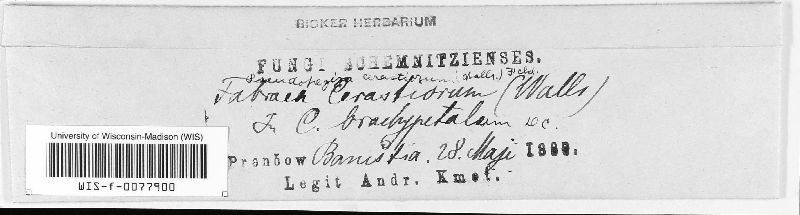 BICKER HERBARIUM
FUNGI SCHEMNITZIENSES.
Pseudopeziza cerastiorum (Wallr.) Fckl.
Fabraea Cerastiorum (Wallr)
In C. brachypetalum DC.
Prenčow Banistia. 28. Maji 1888.
Legit Andr. Kmeť.
University of Wisconsin-Madison (WIS)
WIS-f-0077900